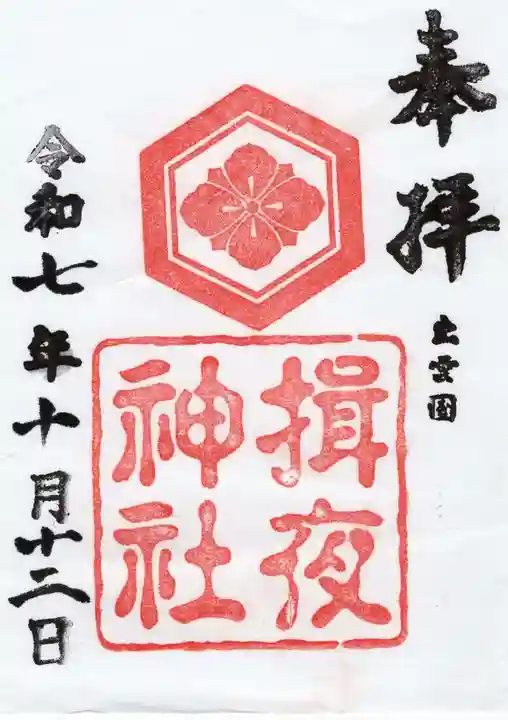 奉拝
出雲國
揖夜
神社
令和七年十月十二日